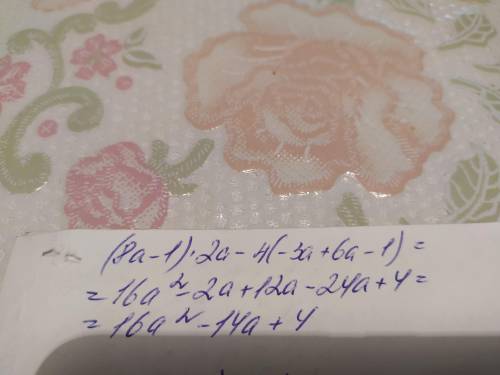 (8a-1)·2a-4(-3a+6a-1)=
=16a²-2a+12a-24a+4=
=16a²-14a+4